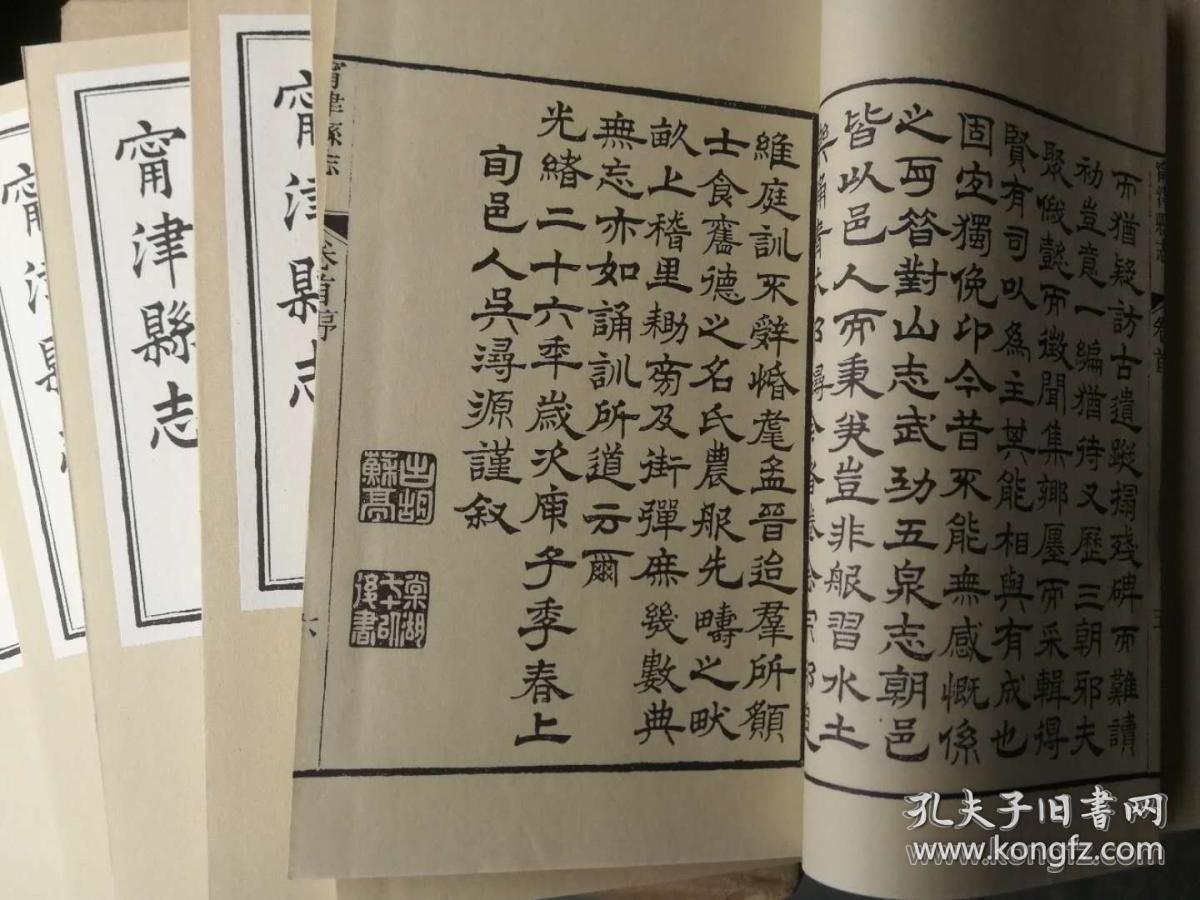 而猶疑訪古遺蹤搨殘碑而難讀
初豈意一編猶待又歷三朝邪夫
聚傲懿而徵聞集鄉廛而采輯得
賢有司以為主其能相與有成也
固宜獨俛卬今昔不能無感慨係
之而答對山志武功五泉志朝邑
皆以邑人而秉筆豈非服習水土
維庭訓不辭惛耄孟晉迨羣所願
士食舊德之名氏農服先疇之畎
畝上稽里耡旁及街彈庶幾數典
無忘亦如誦訓所道云爾
光緒二十六年歲次庚子季春上
旬邑人吳潯源謹叙
甯津縣志
卷首序
六
甯津縣志
卷首
甯津縣志
甯津縣志
甯津縣
孔夫子旧书网
www.kongfz.com